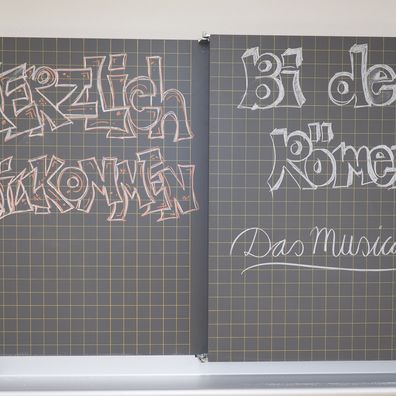 HERZLich
WILLKOMMEN
Bi de
Römer
Das Musica